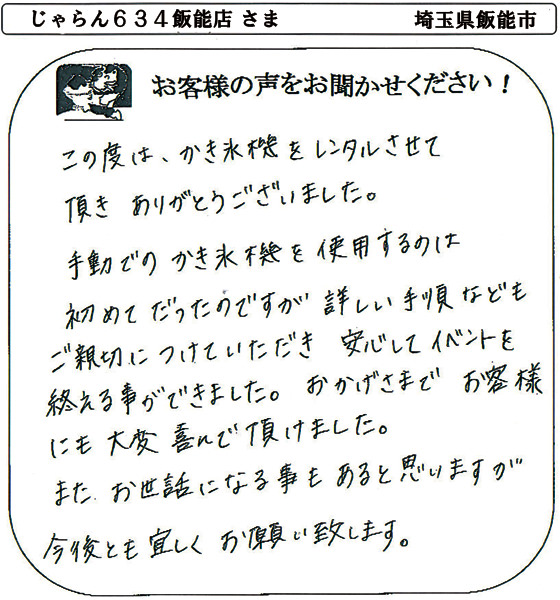 じゃらん634飯能店 さま 埼玉県飯能市
お客様の声をお聞かせください!
この度は、かき氷機をレンタルさせて
頂き ありがとうございました。
手動での かき氷機を使用するのは
初めてだったのですが 詳しい手順なども
ご親切につけていただき 安心してイベントを
終える事ができました。 おかげさまで お客様
にも 大変 喜んで頂けました。
また、お世話になる事も あると思いますが
今後とも宜しく お願い致します。